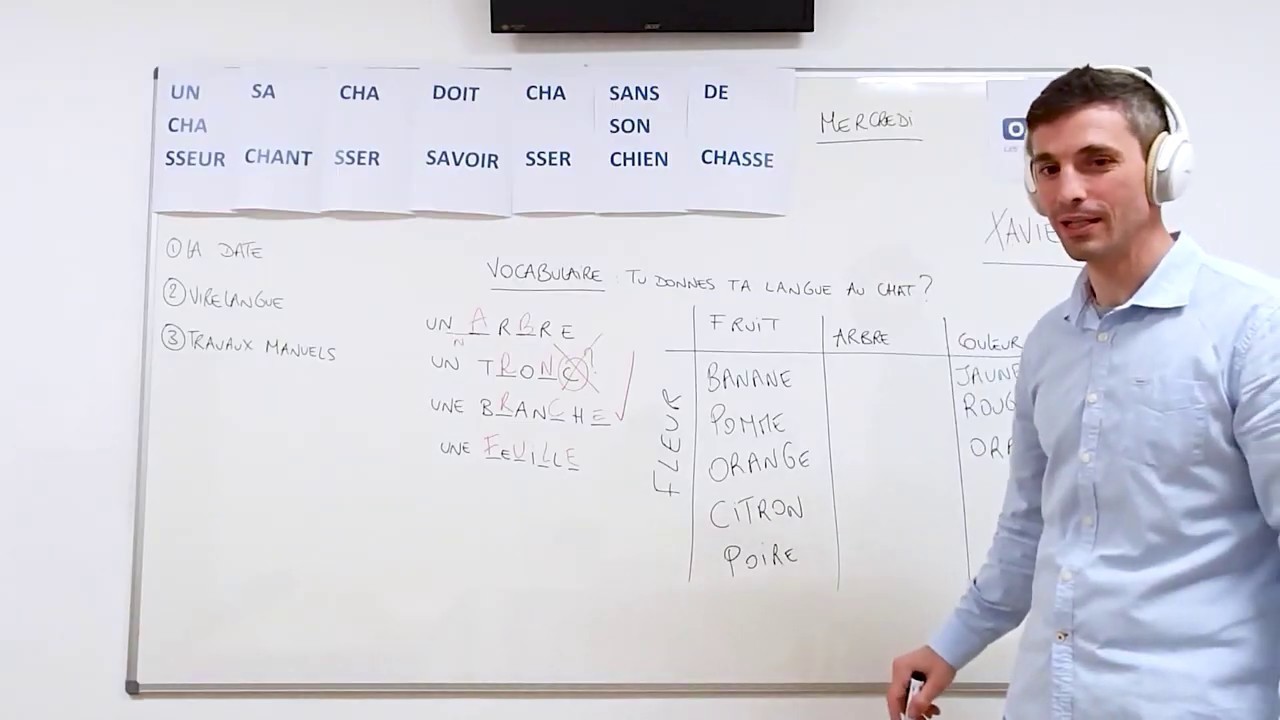 acer
UN SA CHA DOIT CHA SANS DE
CHA SON
SSEUR CHANT SSER SAVOIR SSER CHIEN CHASSE
MERCREDI
XAVIE
① LA DATE
② VIRELANGUE
③ TRAVAUX MANUELS
VOCABULAIRE : TU DONNES TA LANGUE AU CHAT ?
UN ARBRE
N
UN TRONC ?
UNE BRANCHE
UNE FEUILLE
FLEUR
FRUIT ARBRE COULEUR
BANANE JAUNE
POMME ROUG
ORANGE ORA
CITRON
POIRE